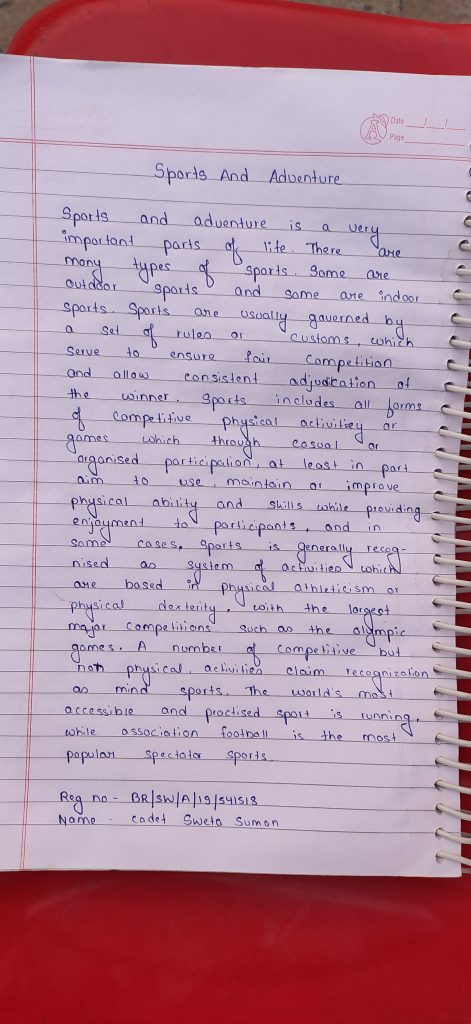 Date / /
Page
Sports And Adventure
Sports and adventure is a very
important parts of life. There are
many types of sports. Some are
outdoor sports and some are indoor
sports. Sports are usually governed by
a set of rules or customs, which
serve to ensure fair competition
and allow consistent adjudication of
the winner. Sports includes all forms
of competitive physical activitiey or
games which through casual or
organised participation, at least in part
aim to use, maintain or improve
physical ability and skills while providing
enjoyment to participants, and in
some cases, Sports is generally recog-
nised as system of activities which
are based in physical athleticism or
physical dexterity, with the largest
major competitions such as the olympic
games. A number of competitive but
non physical, activities claim recognization
as mind sports. The world's most
accessible and practised sport is running,
while association football is the most
popular spectator sports.
Reg no - BR/SW/A/19/541518
Name - cadet Sweta Suman